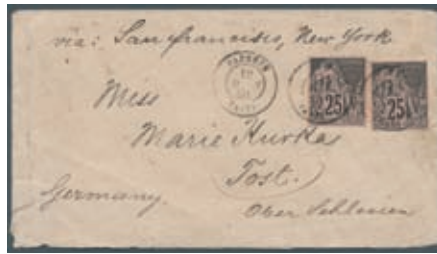 via: San francisco, New York
PAPEETE
TAITI
Miss
25
25
Marie Kurkas
Tost.
Germany.
Ober Schlesien